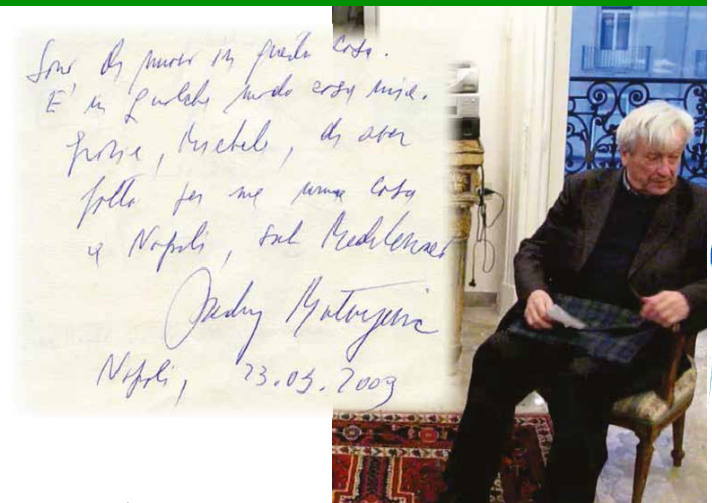 Sono di nuovo in questa casa.
E' in qualche modo casa mia.
Grazie, Michele, di aver
fatto per me una casa
a Napoli, sul Mediterraneo
Predrag Matvejević
Napoli, 23.03.2009